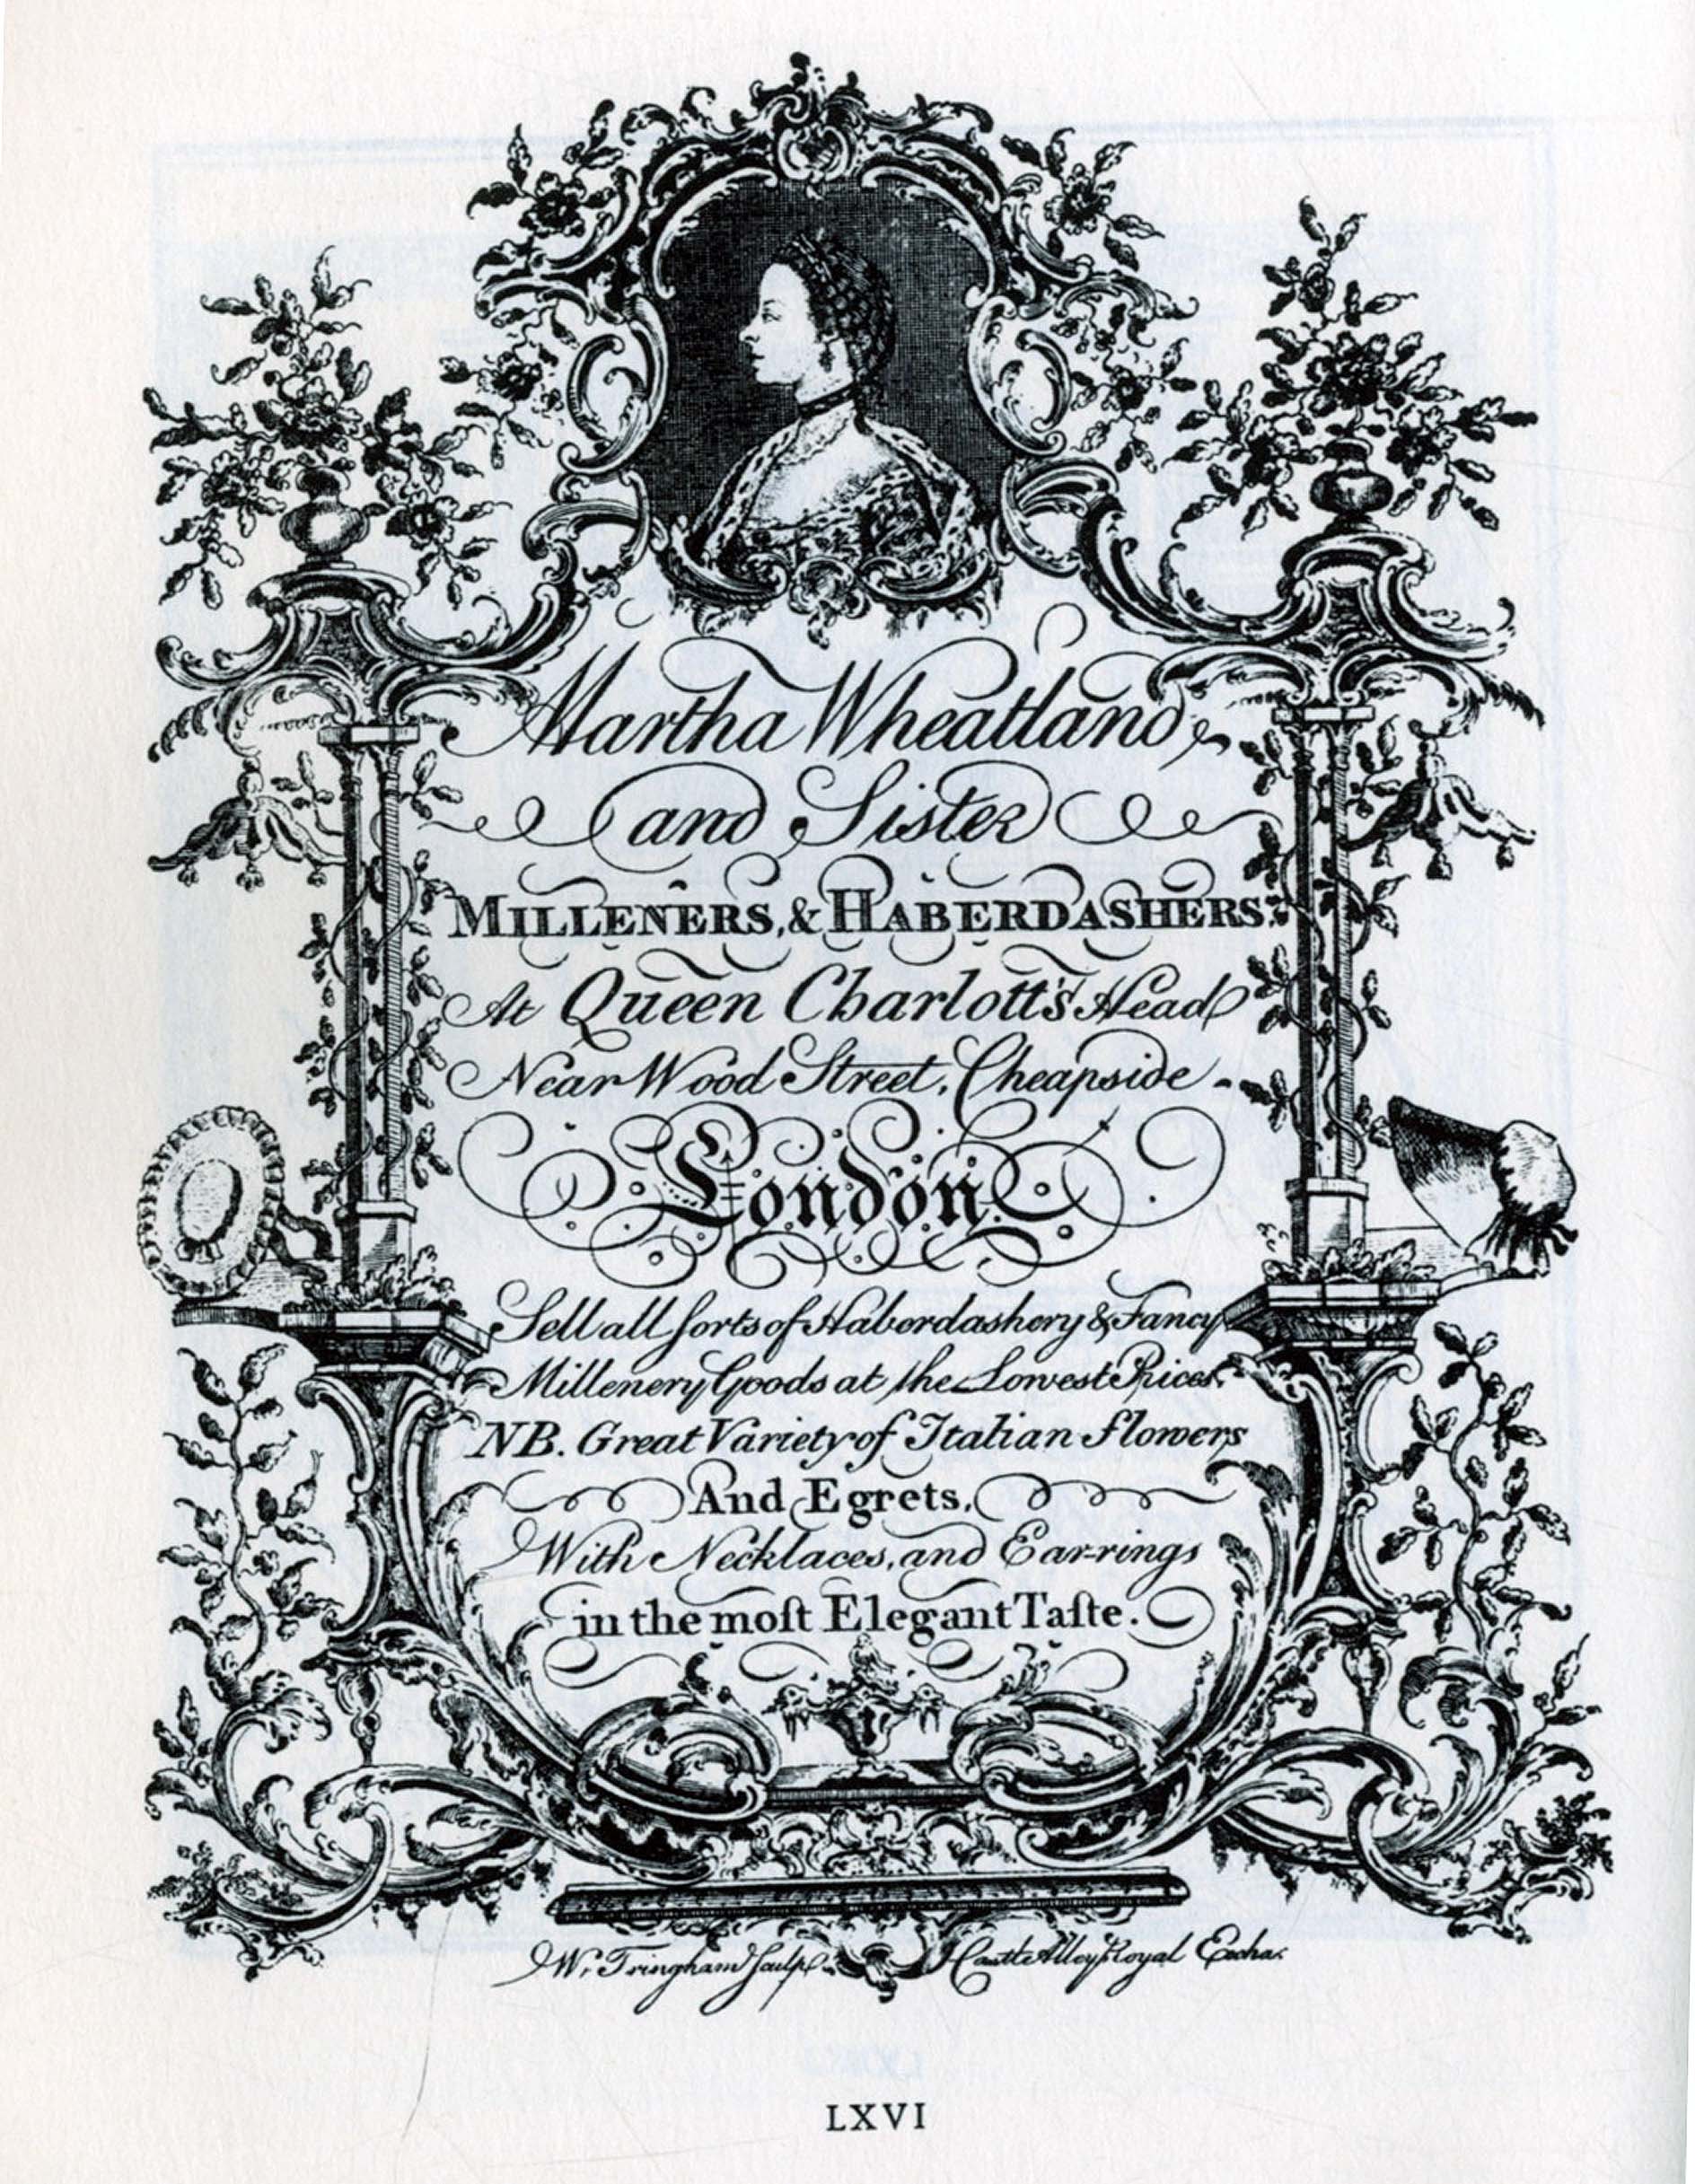 Martha Wheatland
and Sister
MILLENERS, & HABERDASHERS.
At Queen Charlott's Head
Near Wood Street, Cheapside
London.
Sell all ſorts of Haberdashery & Fancy
Millenery Goods at the Lowest Prices.
NB. Great Variety of Italian flowers
And Egrets,
With Necklaces, and Ear-rings
in the moſt Elegant Taſte.
W. Tringham Sculp. Castle Alley Royal Excha:
LXVI